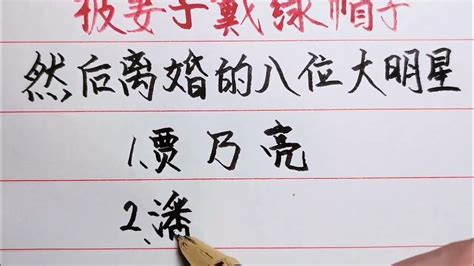 被妻子戴绿帽子
然后离婚的八位大明星
1.贾乃亮
2.潘